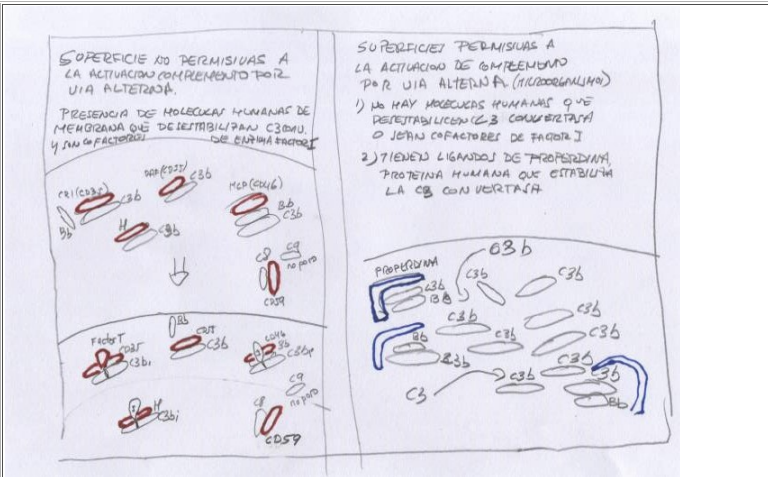 SUPERFICIE NO PERMISIVAS A
LA ACTIVACION COMPLEMENTO POR
VIA ALTERNA.
PRESENCIA DE MOLECULAS HUMANAS DE
MEMBRANA QUE DESESTABILIZAN C3CONV.
Y SON COFACTORES DE ENZIMA FACTOR I
CR1 (CD35)
C3b
Bb
DAF (CD55)
C3b
MCP (CD46)
Bb
C3b
H
C3b
C8
C9
no poro
CD59
Factor I
CD35
C3bi
Bb
CD55
C3b
CD46
Bb
C3bi
I
H
C3bi
C8
C9
no poro
CD59
SUPERFICIES PERMISIVAS A
LA ACTIVACION DE COMPLEMENTO
POR VIA ALTERNA (MICROORGANISMOS)
1) NO HAY MOLECULAS HUMANAS QUE
DESESTABILICEN C3 CONVERTASA
O SEAN COFACTORES DE FACTOR I
2) TIENEN LIGANDOS DE PROPERDINA,
PROTEINA HUMANA QUE ESTABILIZA
LA C3 CONVERTASA
C3b
PROPERDINA
C3b
Bb
C3b
C3b
C3b
C3b
C3b
Bb
C3b
C3b
C3b
C3
C3b
C3b
Bb